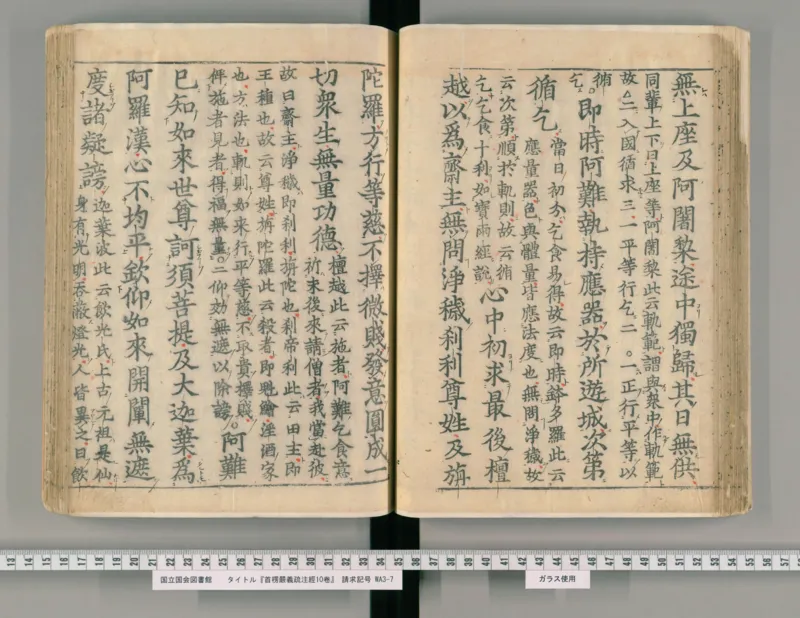 無上座及阿闍黎途中獨歸其日無供
同輩上下曰上座等阿闍黎此云軌範謂與衆中作軌範
故二入國循求三一平等行乞二。一正行平等以
循乞。即時阿難執持應器於所遊城次第
循乞
當日初分乞食易得故云即時鉢多羅此云
應量器色與體量皆應法度也無問淨穢故
云次第順於軌則故云循
乞乞食十利如寶雨經説
心中初求最後檀
越以爲齋主無問淨穢刹利尊姓及旃
陀羅方行等慈不擇微賤發意圓成一
切衆生無量功德
檀越此云施者阿難乞食意
祈末後來請僧者我當赴彼
故曰齋主淨穢即刹利旃陀也刹帝利此云田主即
王種也故云尊姓旃陀羅此云殺者即魁膾淫酒家
也方法也軌則如來行平等慈不取貴擇賤
伴施者見者得福無量。二仰効無遮以除謗。阿難
已知如來世尊訶須菩提及大迦葉爲
阿羅漢心不均平欽仰如來開闡無遮
度諸疑謗
迦葉波此云飲光氏上古元祖是仙
身有光明吞蔽燈光人皆異之曰飲
13 14 15 16 17 18 19 20 21 22 23 24 25 26 27 28 29 30 31 32 33 34 35 36 37 38 39 40 41 42 43 44 45 46 47 48 49 50 51 52 53 54 55 56 57
国立国会図書館 タイトル『首楞嚴義疏注經10巻』 請求記号 WA3-7
ガラス使用